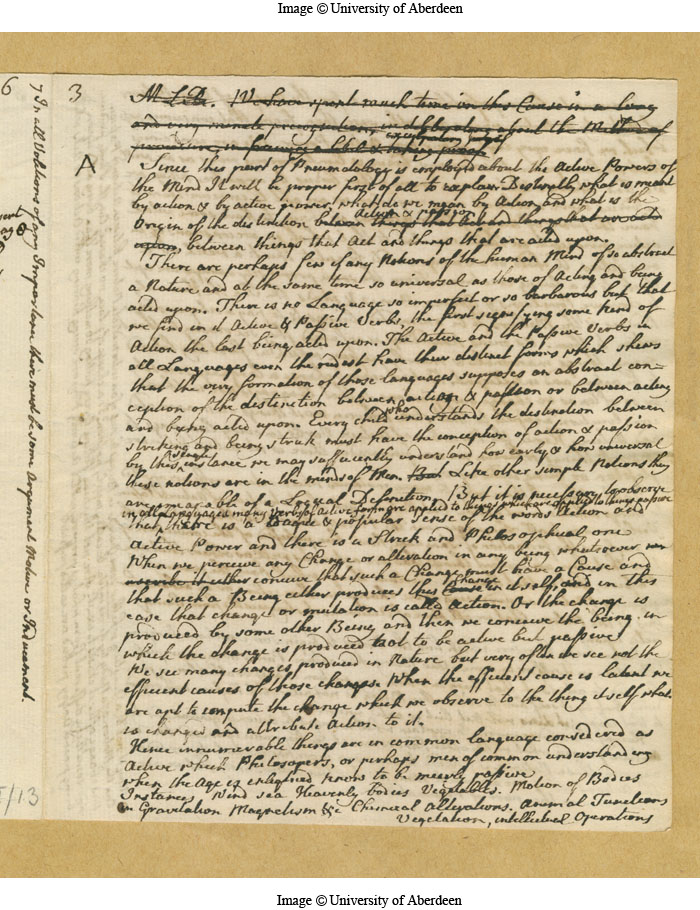 Image © University of Aberdeen
6
7 In all Volitions of any Importance there must be some Argument Motive or Inducement.
3
A
M L D. We have spent much time in this Cause in a long
and very minute precognition, in deliberating about the Method of
procedure, in framing a Libel & taking
Since this part of Pneumatology is employed about the Active Powers of
the Mind It will be proper first of all to explain Distinctly what is meant
by action & by active power, what do we mean by Action, and what is the
Action & passion
Origin of the distinction between things that Act and things that are acted
upon, between things that Act and things that are acted upon.
There are perhaps few if any Notions of the human Mind of so abstract
a Nature and at the same time so universal as those of Acting and being
acted upon. There is no Language so imperfect or so barbarous but that
we find in it Active & Passive Verbs, the first signifying some kind of
Action the last being acted upon. The Active and the Passive Verbs in
all Languages even the rudest have their distinct forms which shews
that the very formation of those languages supposes an abstract con=
ception of the distinction between action & passion or between acting
and being acted upon. Every child who understands the distinction between
striking and being struck must have the conception of action & passion
by this single instance we may sufficiently understand how early & how universal
these notions are in the minds of Men. But Like other simple Notions they
are incapable of a Logical Definition. But it is necessary to observe
in all languages many verbs of active form are applied to things which are passive
that there is a vague & popular sense of the words Action and
Active Power and there is a Strict and Philosophical one
When we perceive any Change or alteration in any being whatsoever we
ascribe it either conceive that such a Change must have a Cause and
that such a Being either produces this Cause Change in itself, and in this
case that change or mutation is called Action. Or the change is
produced by some other Being and then we conceive the being in
which the change is produced not to be active but passive
We see many changes produced in Nature but very often we see not the
efficient causes of those changes. When the efficient cause is latent we
are apt to impute the change which we observe to the thing itself what
is changed and attribute Action to it.
Hence innumerable things are in common language considered as
Active which Philosopers, or perhaps men of common understanding
when the Age is enlightned know to be meerly passive
Instances Wind sea Heavenly bodies Vegetables. Motion of Bodies
in Gravitation Magnetism &c Chymical alterations. Animal Functions
Vegetation, intellectual Operations
/13
Image © University of Aberdeen